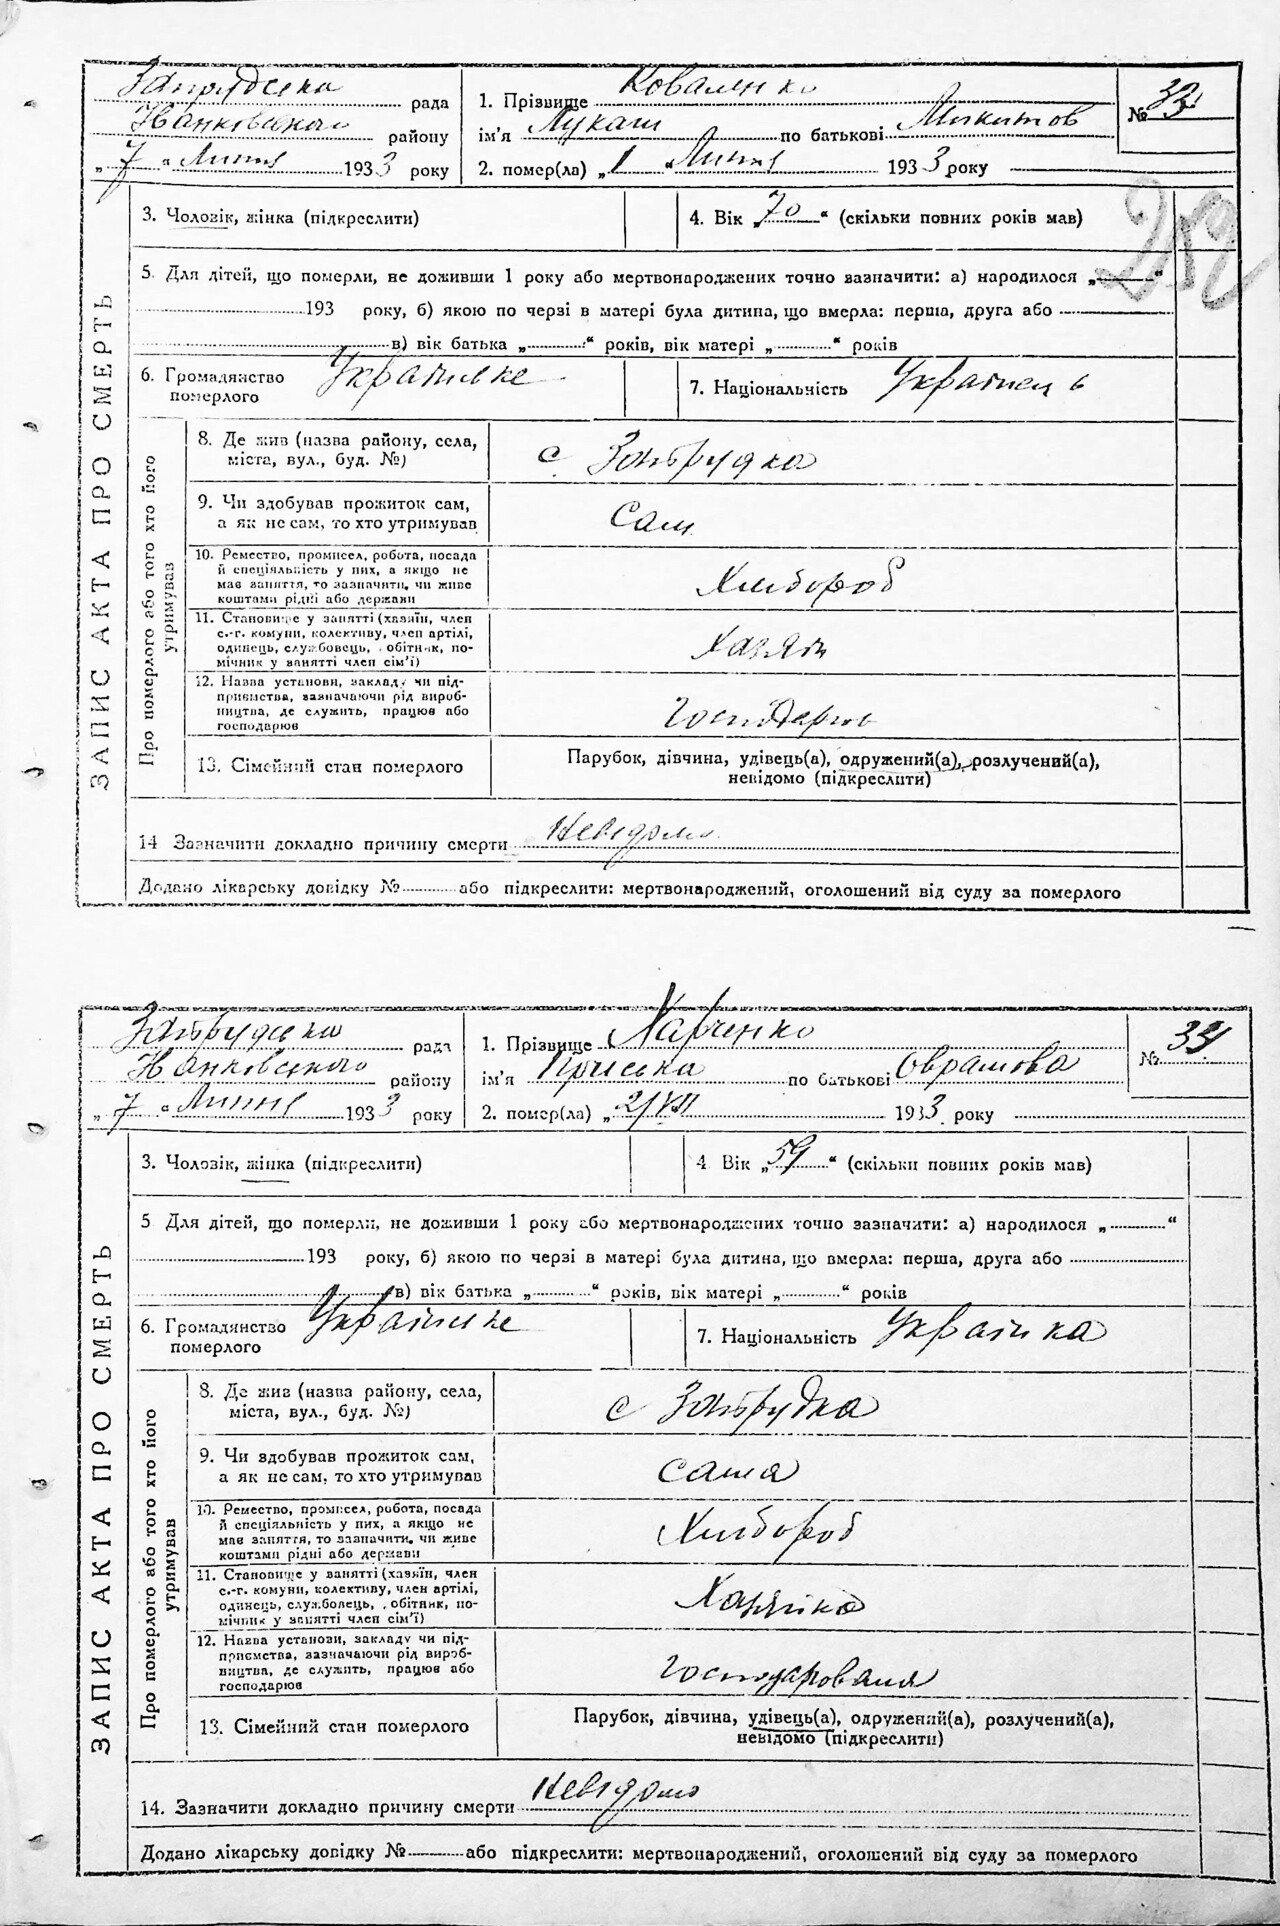 Запрудська рада
Іванковського району
„7“ Липня 1933 року
1. Прізвище Коваленко
ім'я Лукаш по батькові Микитов
2. помер(ла) „1“ Липня 1933 року
№ 33
252
ЗАПИС АКТА ПРО СМЕРТЬ
3. Чоловік, жінка (підкреслити)
4. Вік „70“ (скільки повних років мав)
5. Для дітей, що померли, не доживши 1 року або мертвонароджених точно зазначити: а) народилося „ “
193 року, б) якою по черзі в матері була дитина, що вмерла: перша, друга або
в) вік батька „ “ років, вік матері „ “ років
6. Громадянство померлого Українське
7. Національність Українець
Про померлого або того хто його утримував
8. Де жив (назва району, села,
міста, вул., буд. №)
с Запрудка
9. Чи здобував прожиток сам,
а як не сам, то хто утримував
Сам
10. Ремество, промисел, робота, посада
й спеціяльність у них, а якщо не
має заняття, то зазначити, чи живе
коштами рідні або держави
Хлибороб
11. Становище у занятті (хазяїн, член
с.-г. комуни, колективу, член артілі,
одинець, службовець, обітник, по-
мічник у занятті член сім'ї)
Хазяїн
12. Назва установи, закладу чи під-
приємства, зазначаючи рід вироб-
ництва, де служить, працює або
господарює
13. Сімейний стан померлого
Парубок, дівчина, удівець(а), одружений(а), розлучений(а),
невідомо (підкреслити)
14 Зазначити докладно причину смерти Невідомо
Додано лікарську довідку № або підкреслити: мертвонароджений, оголошений від суду за померлого
Запрудська рада
Іванковського району
„7“ Липня 1933 року
1. Прізвище Харченко
ім'я Приська по батькові Оврамова
2. помер(ла) „2/VII 1933 року
№ 34
ЗАПИС АКТА ПРО СМЕРТЬ
3. Чоловік, жінка (підкреслити)
4. Вік „59“ (скільки повних років мав)
5 Для дітей, що померли, не доживши 1 року або мертвонароджених точно зазначити: а) народилося „ “
193 року, б) якою по черзі в матері була дитина, що вмерла: перша, друга або
в) вік батька „ “ років, вік матері „ “ років
6. Громадянство померлого Українське
7. Національність Українка
Про померлого або того хто його утримував
8. Де жив (назва району, села,
міста, вул., буд. №)
с Запрудка
9. Чи здобував прожиток сам,
а як не сам, то хто утримував
сама
10. Ремество, промисел, робота, посада
й спеціяльність у них, а якщо не
має заняття, то зазначити, чи живе
коштами рідні або держави
Хлибороб
11. Становище у занятті (хазяїн, член
с.-г. комуни, колективу, член артілі,
одинець, службовець, обітник, по-
мічник у занятті член сім'ї)
Хазяйка
12. Назва установи, закладу чи під-
приємства, зазначаючи рід вироб-
ництва, де служить, працює або
господарює
Господарованя
13. Сімейний стан померлого
Парубок, дівчина, удівець(а), одружений(а), розлучений(а),
невідомо (підкреслити)
14. Зазначити докладно причину смерти Невідомо
Додано лікарську довідку № або підкреслити: мертвонароджений, оголошений від суду за померлого